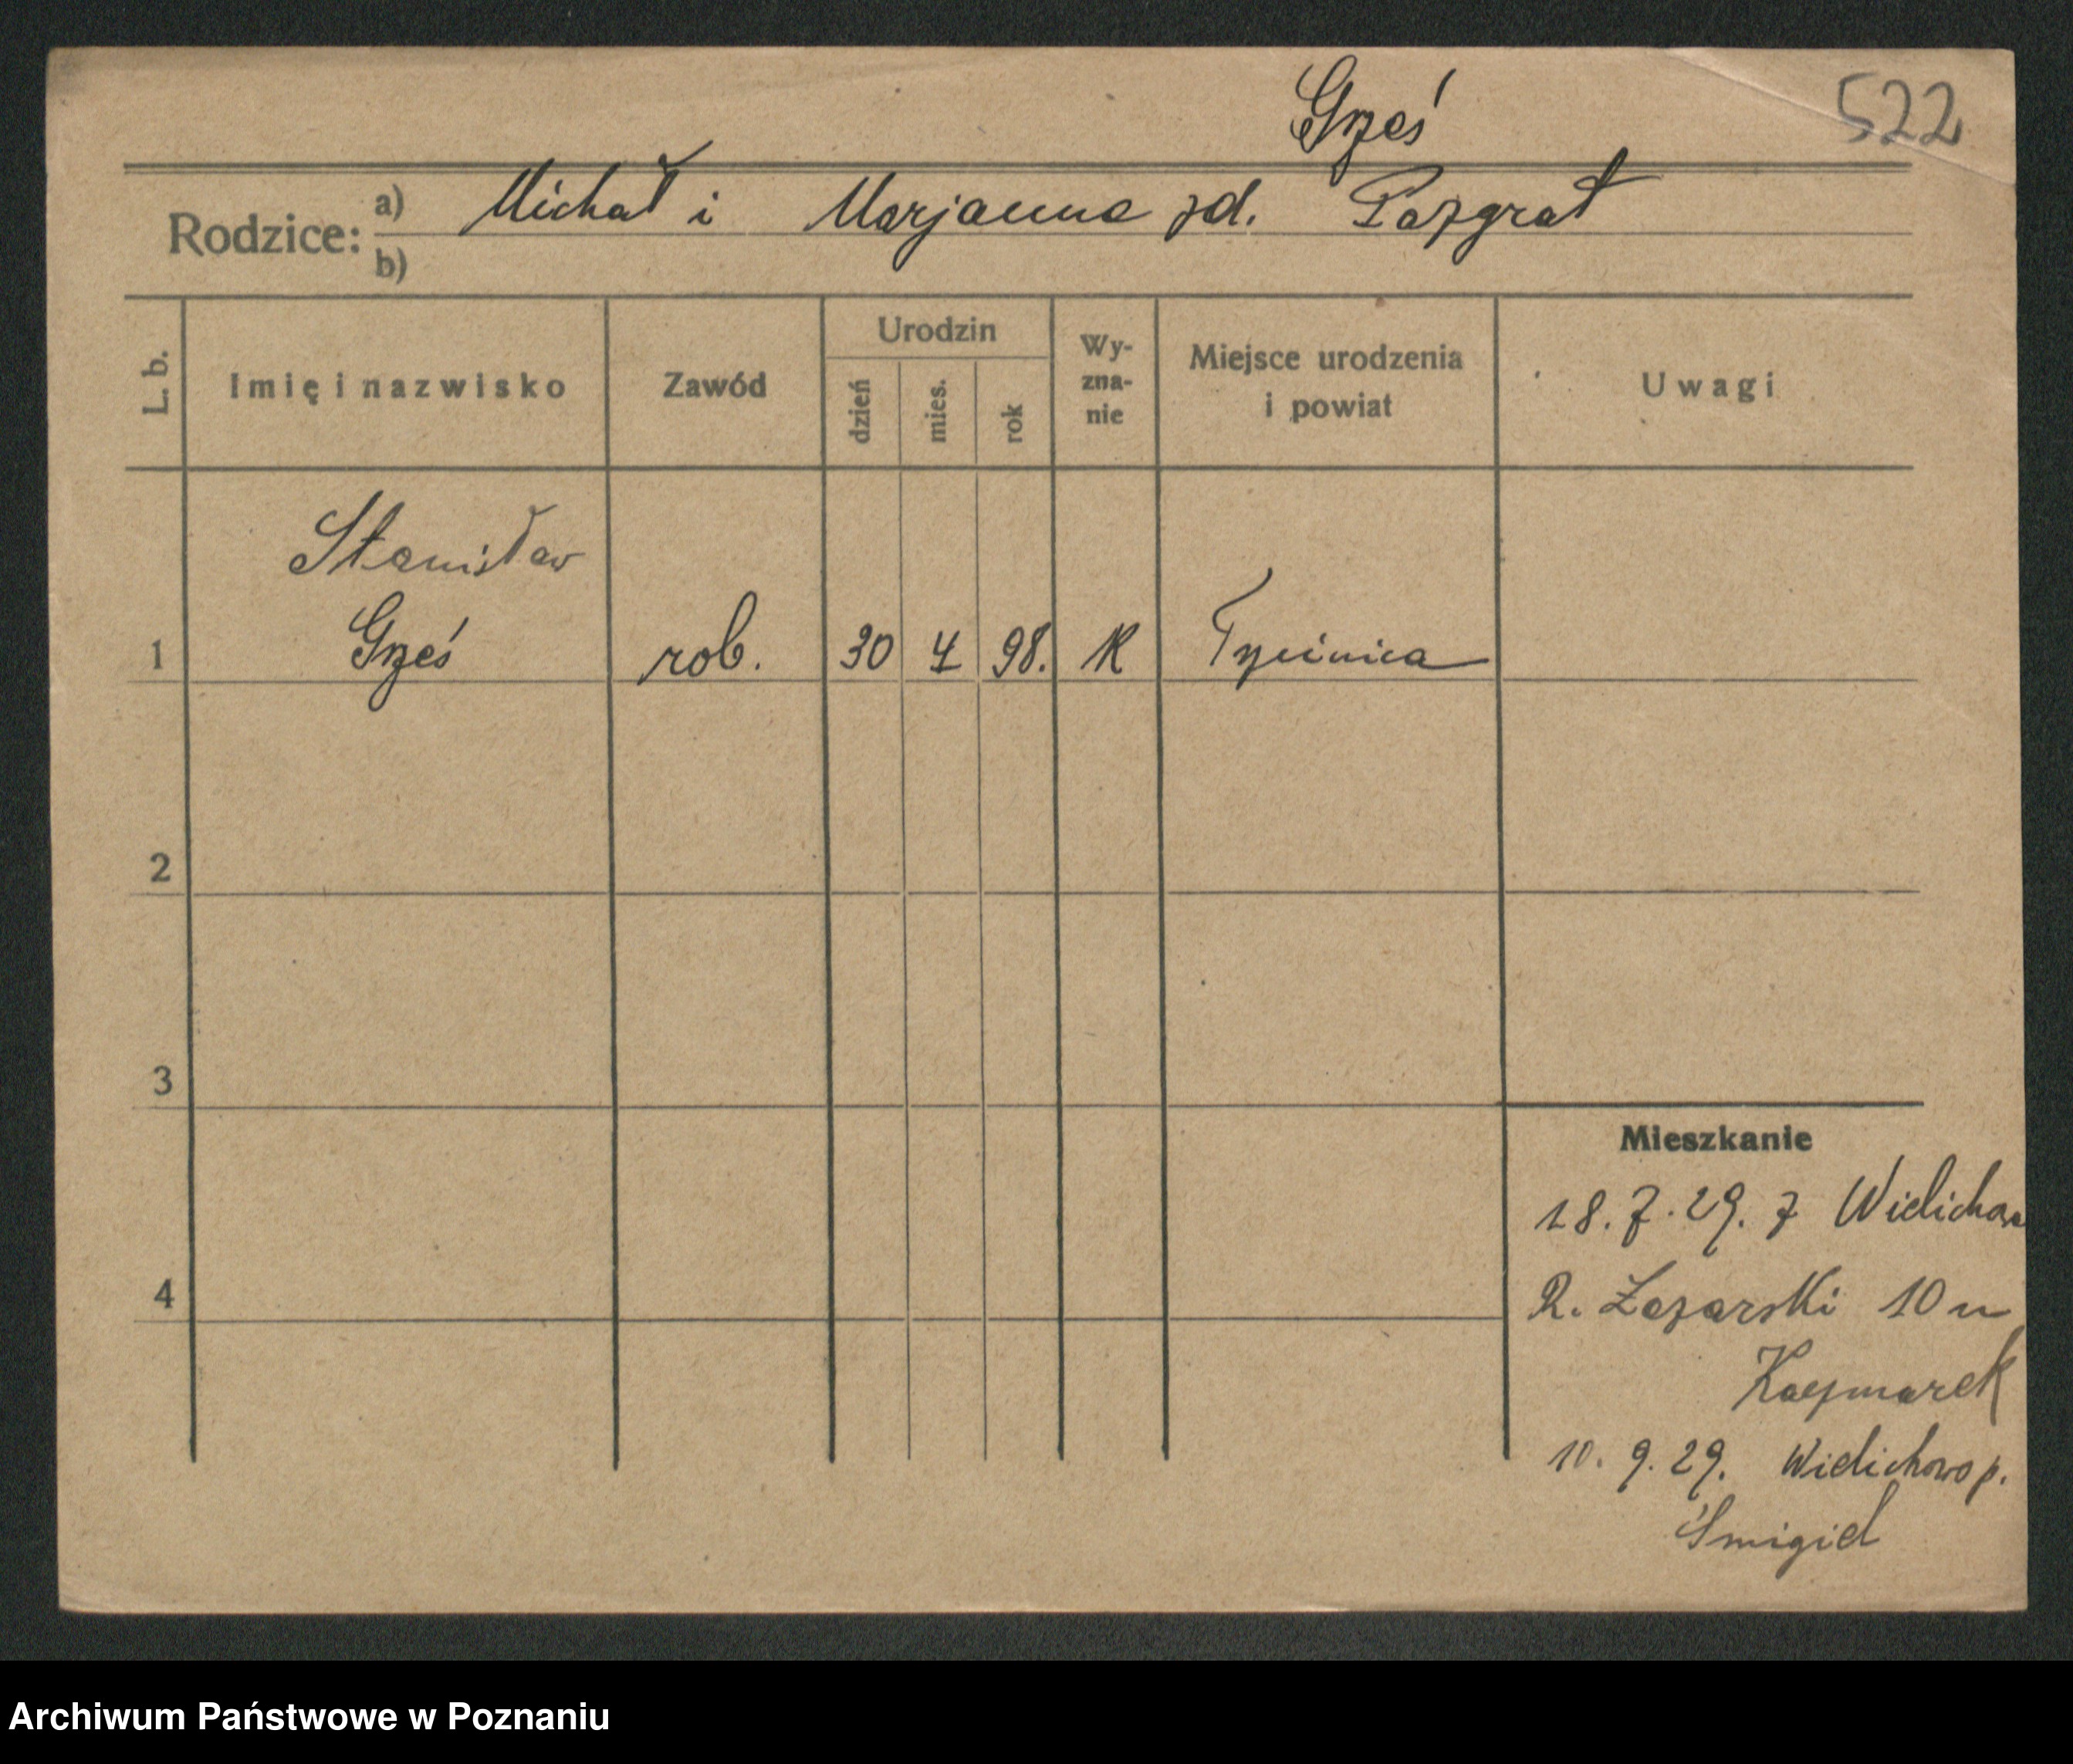 Grześ 522
Rodzice: a) Michał i Marjanna zd. Pazgrat
b)
L. b. Imię i nazwisko Zawód Urodzin dzień mies. rok Wy-zna-nie Miejsce urodzenia i powiat Uwagi
Stanisław
1 Grześ rob. 30 4 98. K Trzcinica
2
3
Mieszkanie
18. 7. 29. z
4 R. Łazarski 10 u
Kaczmarek
10. 9. 29. Wielichowo p.
Śmigiel
Archiwum Państwowe w Poznaniu